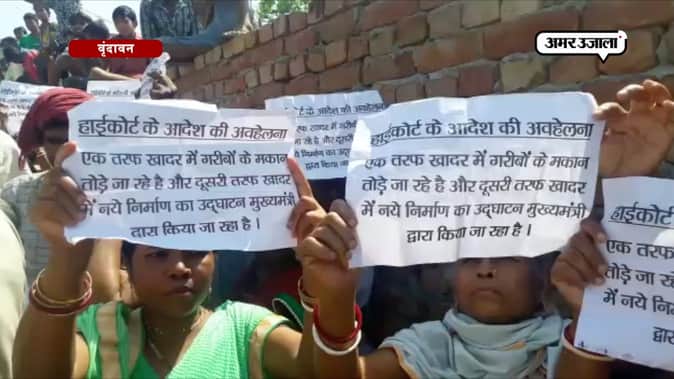 वृंदावन
अमर उजाला
हाईकोर्ट के आदेश की अवहेलना
एक तरफ खादर में गरीबों के मकान
तोड़े जा रहे है और दूसरी तरफ खादर
में नये निर्माण का उद्घाटन मुख्यमंत्री
द्वारा किया जा रहा है ।
हाईकोर्ट के आदेश की अवहेलना
एक तरफ खादर में गरीबों के मकान
तोड़े जा रहे है और दूसरी तरफ खादर
में नये निर्माण का उद्घाटन मुख्यमंत्री
द्वारा किया जा रहा है ।
हाईकोर्ट
एक तरफ
तोड़े जा
में नये
द्वारा